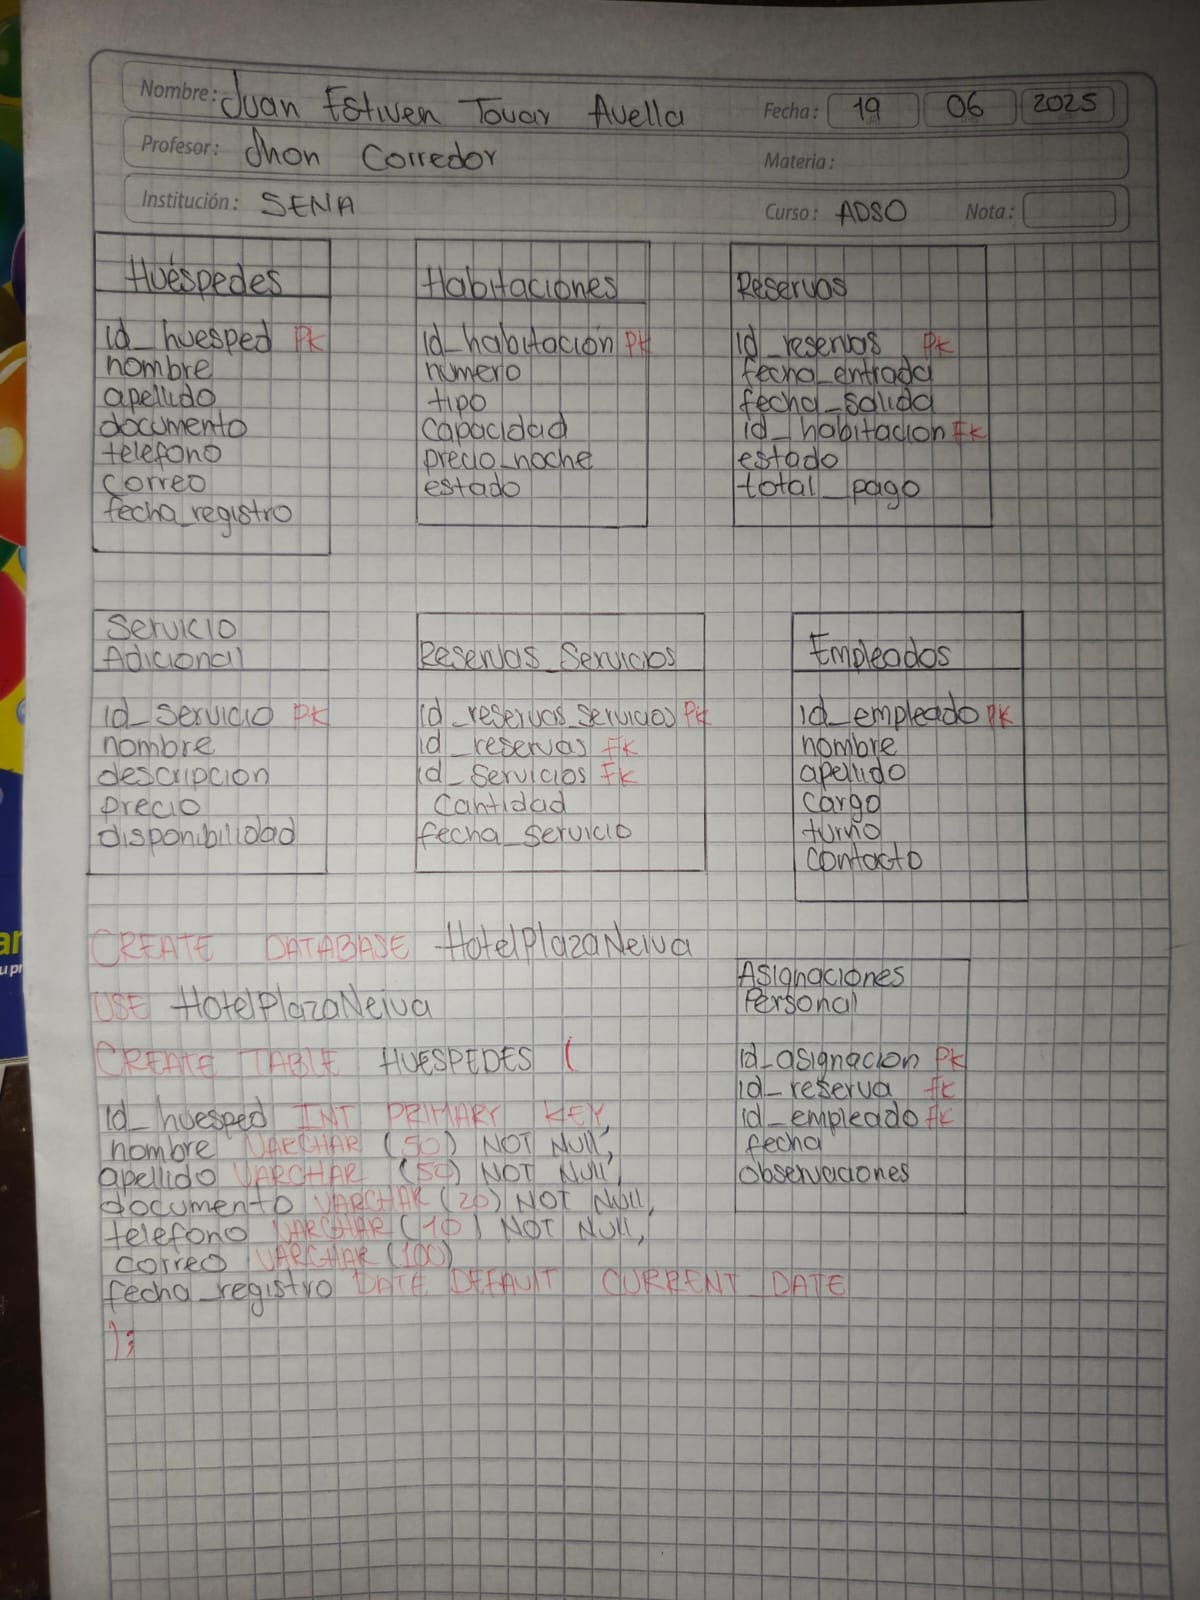 Nombre: Juan Estiven Tovar Avella Fecha: 19 06 2025
Profesor: Jhon Corredor Materia:
Institución: SENA Curso: ADSO Nota:
Huéspedes
id_huesped PK
nombre
apellido
documento
telefono
correo
fecha_registro
Habitaciones
id_habitación PK
numero
tipo
capacidad
precio_noche
estado
Reservas
id_reservas PK
fecha_entrada
fecha_salida
id_habitacion FK
estado
total_pago
Servicio
Adicional
id_servicio PK
nombre
descripcion
precio
disponibilidad
Reservas_Servicios
id_reservas_servicios PK
id_reservas FK
id_servicios FK
cantidad
fecha_servicio
Empleados
id_empleado PK
nombre
apellido
cargo
turno
contacto
CREATE DATABASE HotelPlazaNeiva
USE HotelPlazaNeiva
CREATE TABLE HUESPEDES (
id_huesped INT PRIMARY KEY,
nombre VARCHAR (50) NOT NULL,
apellido VARCHAR (50) NOT NULL,
documento VARCHAR (20) NOT NULL,
telefono VARCHAR (10) NOT NULL,
correo VARCHAR (100)
fecha_registro DATE DEFAULT CURRENT DATE
);
Asignaciones
Personal
id_asignacion PK
id_reserva fk
id_empleado fk
fecha
observaciones